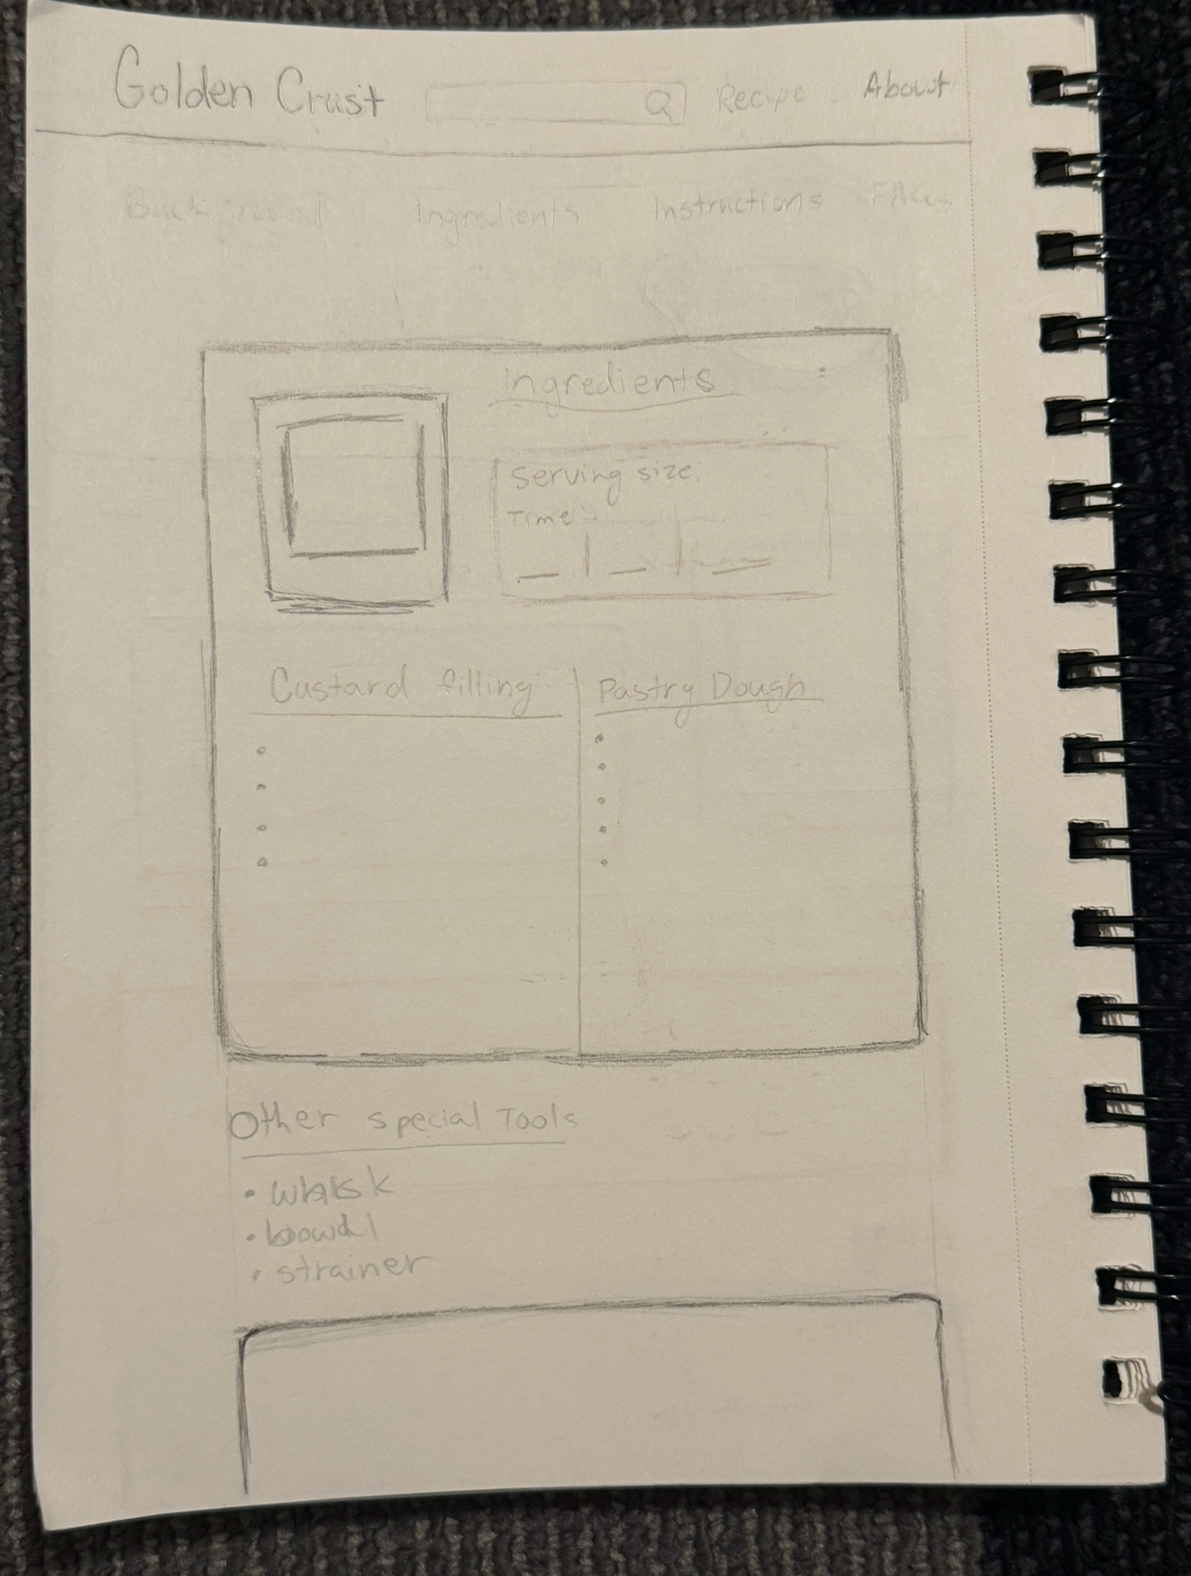 Golden Crust Recipe About
Background Ingredients Instructions FAQs
Ingredients
Serving size:
Time:
Custard filling Pastry Dough
Other special Tools
• whisk
• bowl
• strainer